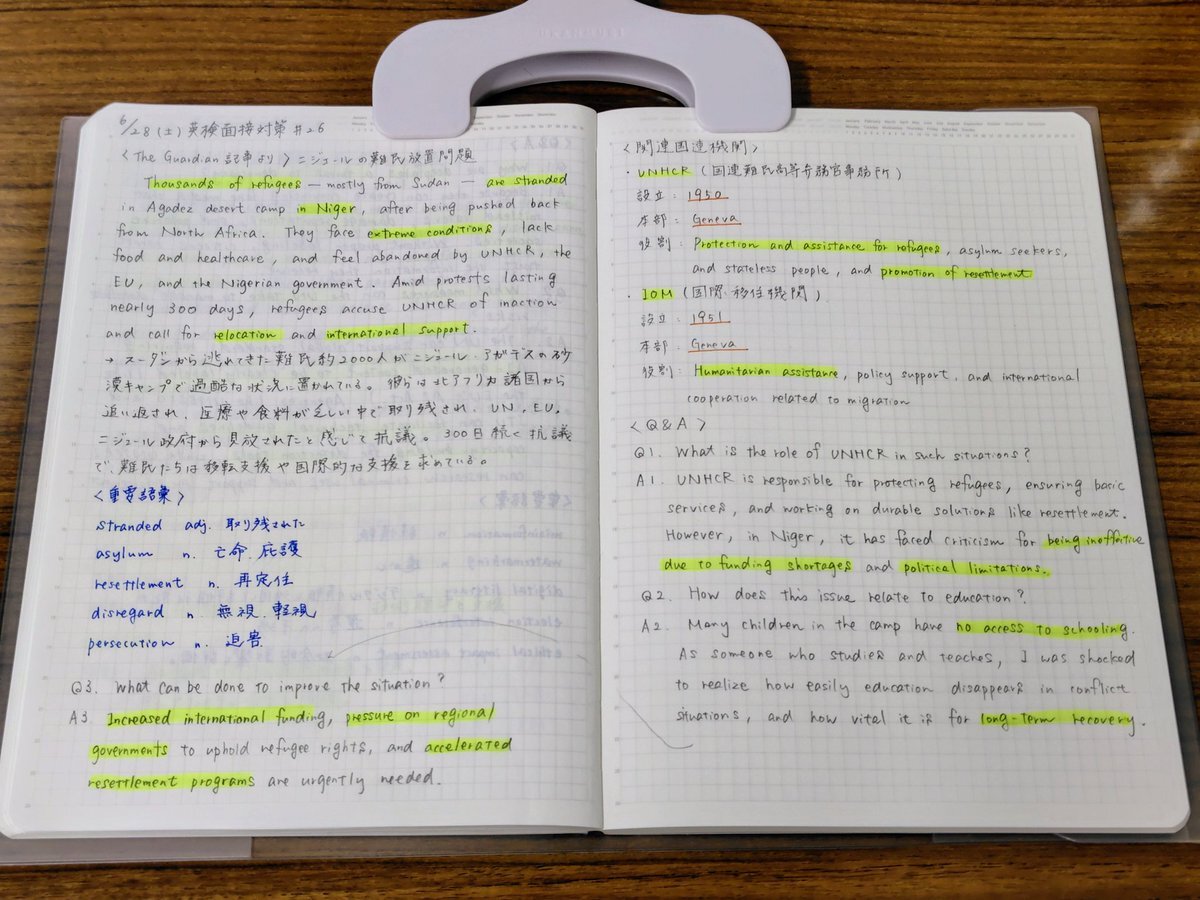 6/28(土)英検面接対策 #26
〈The Guardian 記事より〉ニジェールの難民放置問題
Thousands of refugees — mostly from Sudan — are stranded
in Agadez desert camp in Niger, after being pushed back
from North Africa. They face extreme conditions, lack
food and healthcare, and feel abandoned by UNHCR, the
EU, and the Nigerian government. Amid protests lasting
nearly 300 days, refugees accuse UNHCR of inaction
and call for relocation and international support.
→ スーダンから逃れてきた難民約2000人がニジェール・アガデスの砂
漠キャンプで過酷な状況に置かれている。彼らは北アフリカ諸国から
追い返され、医療や食料が乏しい中で取り残され、UN、EU、
ニジェール政府から見放されたと感じて抗議。300日続く抗議
で、難民たちは移転支援や国際的な支援を求めている。
〈重要語彙〉
stranded adj. 取り残された
asylum n. 亡命、庇護
resettlement n. 再定住
disregard n. 無視、軽視
persecution n. 迫害
Q3. What can be done to improve the situation?
A3. Increased international funding, pressure on regional
governments to uphold refugee rights, and accelerated
resettlement programs are urgently needed.
〈関連国連機関〉
・UNHCR(国連難民高等弁務官事務所)
設立:1950
本部:Geneva
役割:Protection and assistance for refugees, asylum seekers,
and stateless people, and promotion of resettlement
・IOM(国際移住機関)
設立:1951
本部:Geneva
役割:Humanitarian assistance, policy support, and international
cooperation related to migration
〈Q&A〉
Q1. What is the role of UNHCR in such situations?
A1. UNHCR is responsible for protecting refugees, ensuring basic
services, and working on durable solutions like resettlement.
However, in Niger, it has faced criticism for being ineffective
due to funding shortages and political limitations.
Q2. How does this issue relate to education?
A2. Many children in the camp have no access to schooling.
As someone who studies and teaches, I was shocked
to realize how easily education disappears in conflict
situations, and how vital it is for long-term recovery.